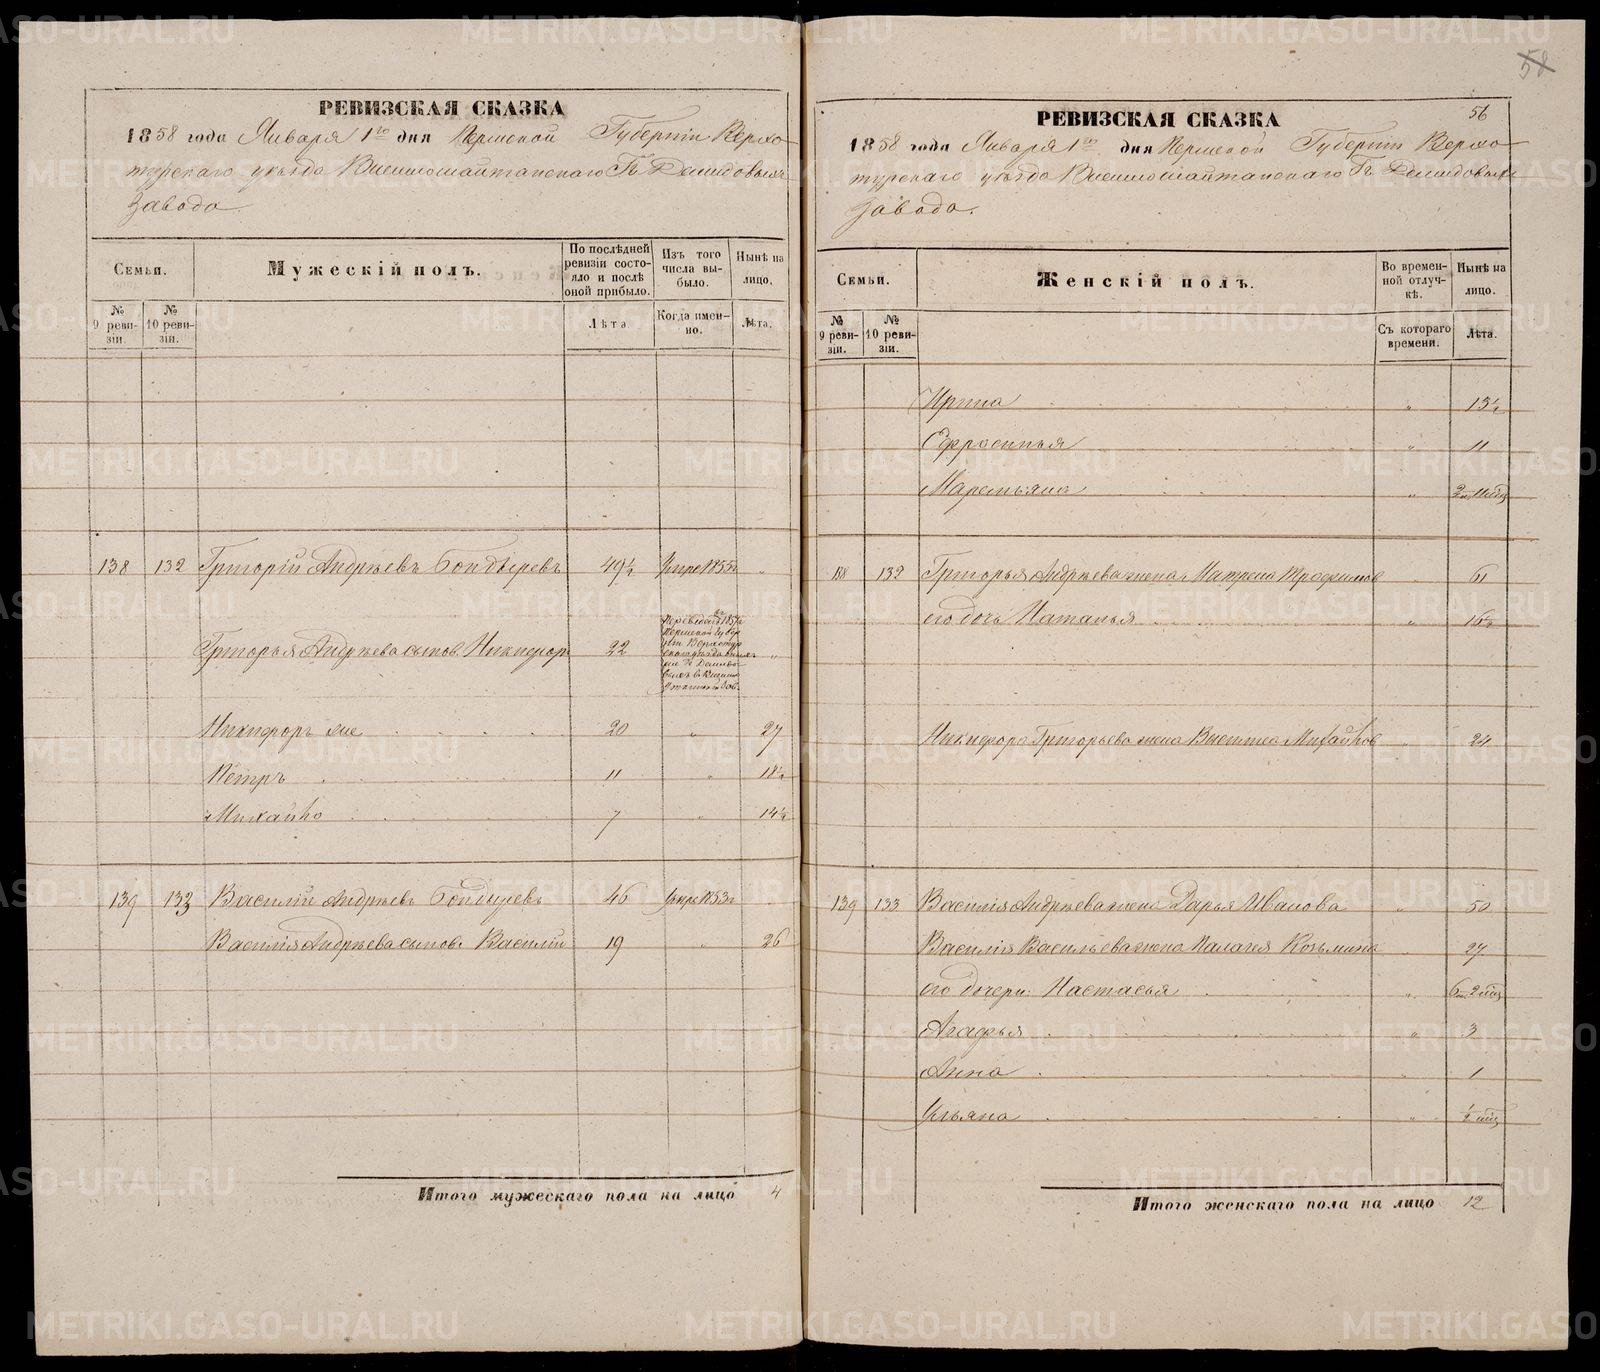 РЕВИЗСКАЯ СКАЗКА
1858 года Января 1го дня Пермской Губернiи Верхо-
турскаго уѣзда Висимошайтанскаго Гг. Демидовыхъ
завода.
Семьи.
Мужескiй полъ.
По послѣдней ревизiи состо-
яло и послѣ оной прибыло.
Изъ того числа вы-
было.
Нынѣ на лицо.
№ 9 реви-
зiи.
№ 10 реви-
зiи.
Лѣта
Когда имен-
но.
Лѣта.
138 132 Григорiй Андрѣевъ 49½ Умре 1855 „
Григорья Андрѣева сынов. Никифор 22 „
Никифоръ . . . . . 20 „ 27
Петръ . . . . . 11 „ 18½
Михайло . . . . . 7 „ 14½
139 133 Василiй Андрѣевъ 46 Умре 1853
Василiя Андрѣева сынов. Василiй 19 „ 26
Итого мужескаго пола на лицо 4
58
56
РЕВИЗСКАЯ СКАЗКА
1858 года Января 1го дня Пермской Губернiи Верхо-
турскаго уѣзда Висимошайтанскаго Гг. Демидовыхъ
завода.
Семьи.
Женскiй полъ.
Во времен-
ной отлуч-
кѣ.
Нынѣ на лицо.
№ 9 реви-
зiи.
№ 10 реви-
зiи.
Съ котораго времени.
Лѣта.
Ирина „ 13½
Ефросинья „ 11
Маремьяна „
138 132 Григорья Андрѣева жена Матрена Трофимов 61
его дочь Наталья 16½
Никифора Григорьева жена Михайлов „ 24
139 133 Василiя Андрѣева жена Дарья Иванова „ 50
Василiя Васильева жена Палагея Козьмина „ 27
его дочери: Настасья „
Агафья „ 3
Анна „ 1
Ульяна „
Итого женскаго пола на лицо 12
METRIKI.GASO-URAL.RU